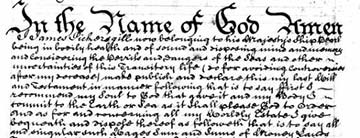 In the Name of God Amen
I James Pickersgill now belonging to his Majesty's Ship
being in bodily health and of sound and disposing mind and memory
and considering the Perils and dangers of the Seas and other
uncertainties of this Transitory life (do for avoiding controversies
after my decease) make publish and declare this my last Will
and Testament in manner following that is to say First I
recommend my Soul to God that gave it and my Body I
commit to the Earth or Sea as it shall please God to Order
and as for and concerning all my Worldly Estate I give
bequeath and dispose thereof as followeth that is to say all
and singular such Wages Sum and Sums of Money Lands